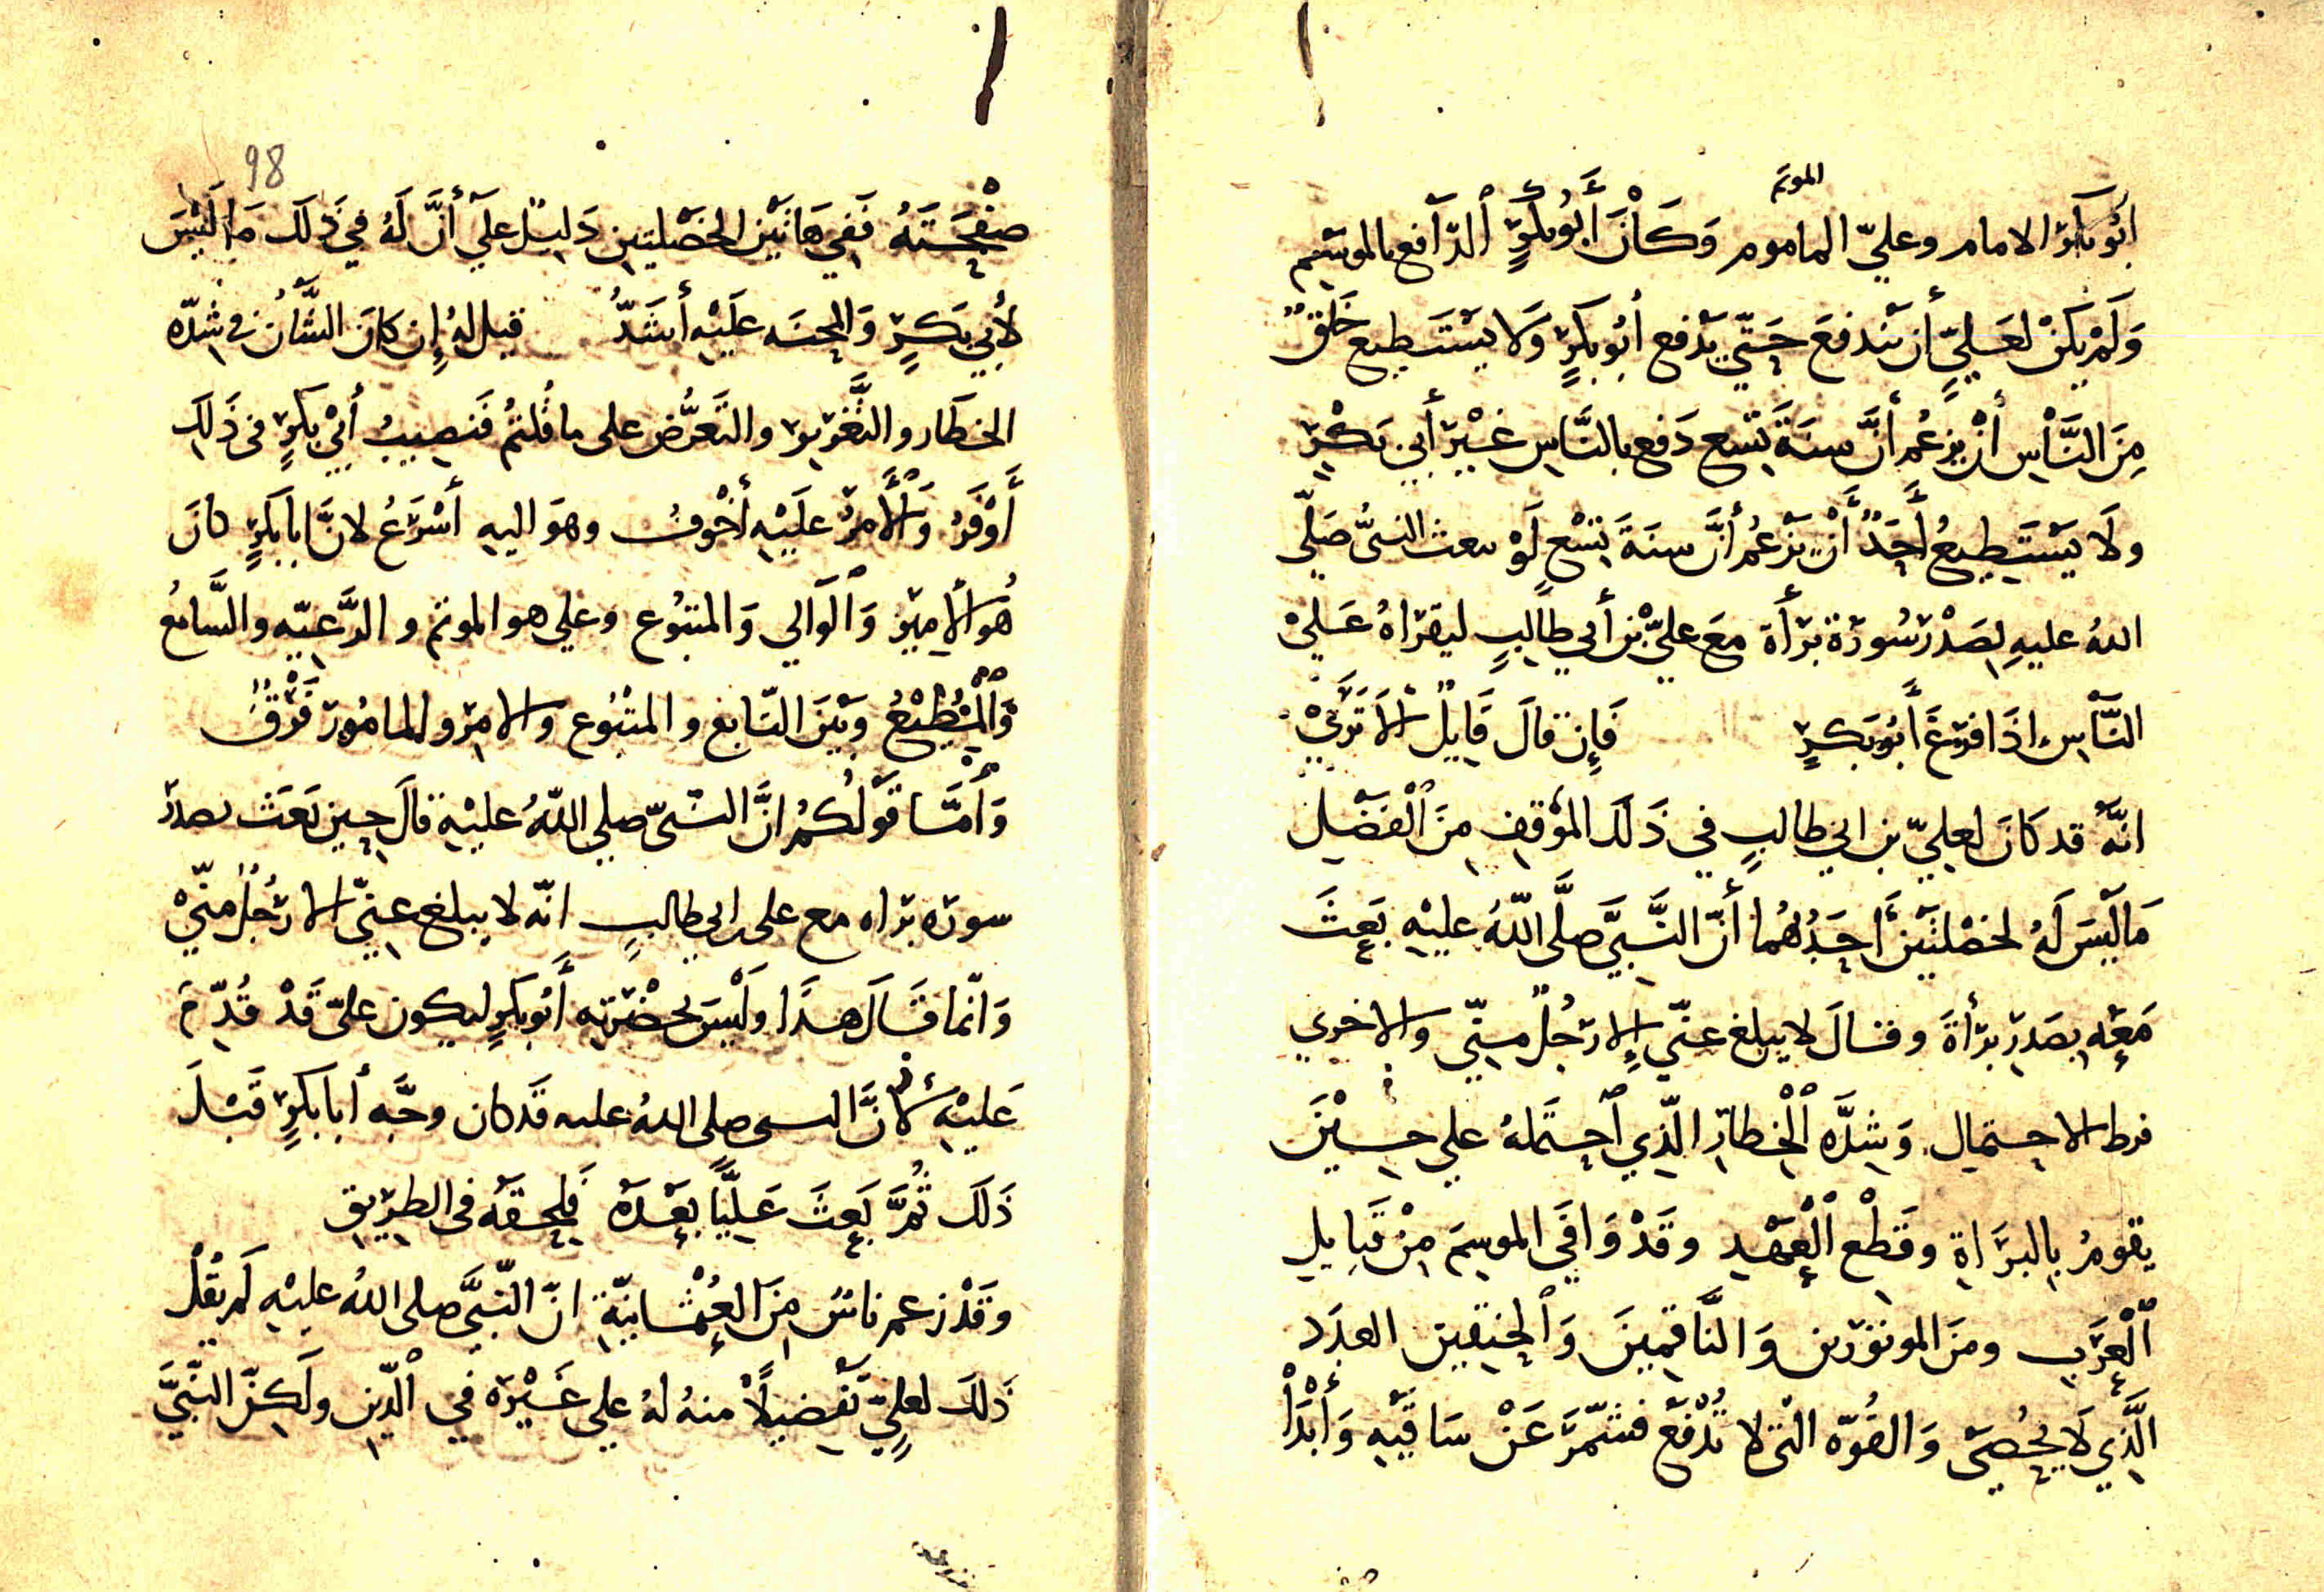 الموتم
أَبُو بكر الامام وعليّ الماموم وَكَانَ أَبُو بكرٍ الدّافع بالموسِم
وَلَمْ يكنْ لعَليٍّ أن يَندفعَ حَتّي يَدْفع أبُو بكرٍ وَلا يَسْتَطيع خَلقٌ
مِنَ النَّاس أنْ يزعُم أنَّ سنَةَ تِسع دَفع بالنَّاس غَيْر أبي بَكْرٍ
ولَا يَسْتَطيعُ أَحَدٌ أَنْ يَزْعُم أنَّ سنَةَ تِسْع لَوْ بعث النبيُّ صَلّي
اللهُ عليهِ بصَدْر سُورَة بَرأَة مَعَ عليّ بْن أبي طالِبٍ ليقراهُ عَلي
النَّاس إذَا فرَغَ أَبُو بَكرٍ فَإِن قالَ قَايِلٌ الَا تَرَيْ
انّهُ قد كانَ لعليّ بن ابي طالبٍ في ذَلكَ المَوْقِفِ مِنَ الْفَضْلِ
مَا لَيْسَ لَهُ لخصْلتَيْن أَحَدُهُما أنّ النَّبيَّ صلَّى اللهُ عليْهِ بَعثَ
مَعَهِ بصَدر بَرأةَ وقالَ لا يبلغ عنّي إلا رَجُلٌ منّي والاخري
فرط الاحتمال وَشدَّه الْخطار الّذي احتَملهُ علي حِيْنَ
يقومُ بالبَرَاة وقَطْع الْعَهْدِ وقَدْ وَافَي الموسِمَ مِنْ قَبايلِ
الْعَرَب ومنَ الموتورين وَالنَّاقمِينَ وَالحنِقين العدَد
الَّذي لَا يُحْصَى وَالقُوّه الّتي لا تُدْفَع فشَمّرَ عَنْ سَاقَيْهِ وَأبْدَا
98
صَفْحَتَهُ فَفي هَاتَيْن الخَصْلتين دَلِيلٌ عَلَي أنَّ لَهُ في ذَلكَ مَا لَيْسَ
لأَبي بَكرٍ وَالمحنَه عَلَيْه أشَدُّ قيل لهُ إن كانَ الشَّان في شدّه
الخطَار والتَّغرير والتَّعَرُّض على ما قُلتُم فَنصِيبُ أبي بَكرٍ في ذَلِكَ
أَوْفَرُ وَالْأَمرُ عَلَيْهِ أخْوفُ وهوَ اليهِ أسْرَعُ لانَّ ابا بَكرٍ كانَ
هُو الأمير وَالْوَالي وَالمتبُوع وعلي هو الموتم والرَّعيّه والسَّامعُ
وَالْمُطيْعُ وبَيْنَ التّابع والمتْبُوع والامِر والمامُور فَرْقٌ
وَأَمَّا قَوْلُكُمُ انَّ النَّبيّ صلي اللهُ عليْهِ قالَ حِين بَعَثَ بصدر
سوره براه مع على ابي طالبٍ انّه لا يبلغ عنِّي الا رَجُلٌ منّيْ
وَانّما قَالَ هذَا ولَيْسَ بحَضْرَتِه أَبُو بكرٍ ليكون عليّ قَدْ قُدِّمَ
عَليْهِ لأنَّ النبي صلى اللهُ عليه قَد كان وجَّه أبا بَكرٍ قَبْلَ
ذَلكَ ثُمَّ بَعثَ عَليًّا بَعْدَهُ فَلحِقَهُ في الطريقِ
وقَدْ زعم ناسٌ مِنَ العُثْمَانيّة انّ النّبيَّ صلى اللهُ عليْهِ لَم يَقُلْ
ذَلكَ لعليّ تَفْضِيلاً منهُ لهُ علي غَيْره في الدّين ولَكِنّ النّبيَّ